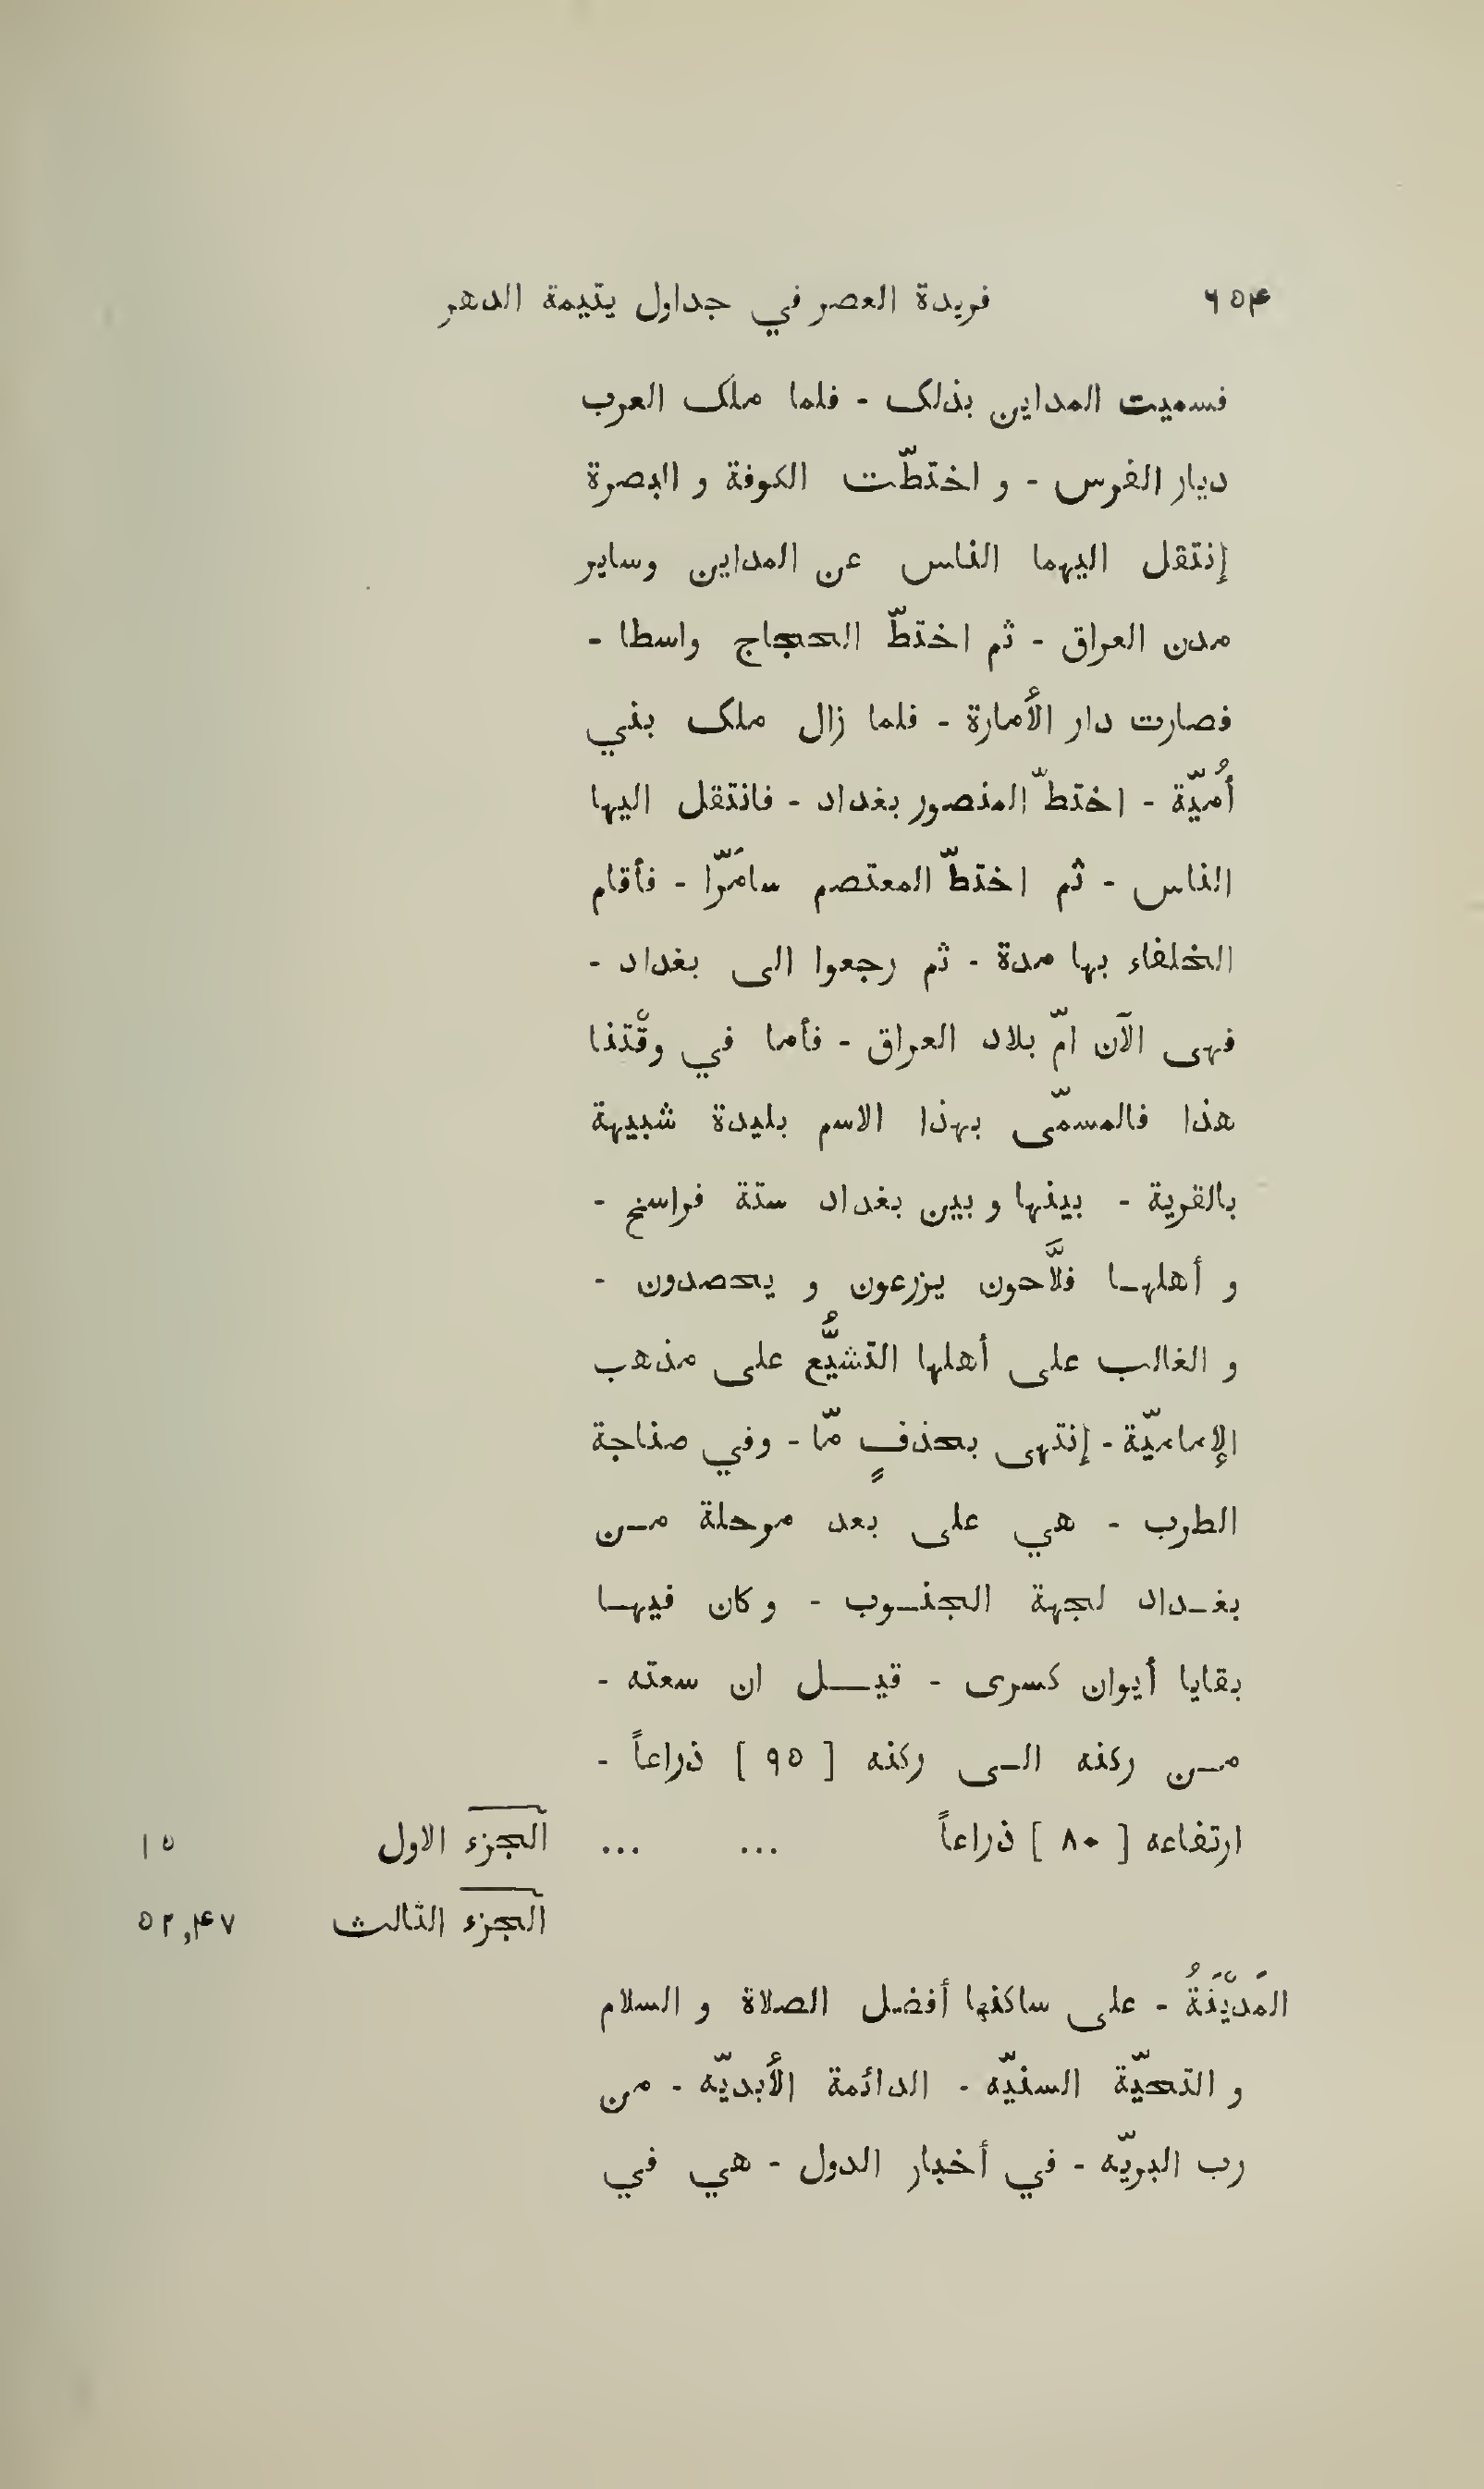 ۶۵۴ فريدة العصر في جداول يتيمة الدهر
فسميت المداين بذلک - فلما ملک العرب
ديار الفرس - و اختطّت الكوفة و البصرة
إنتقل اليهما الناس عن المداين وساير
مدن العراق - ثم اختطّ الحجاج واسطا -
فصارت دار الأمارة - فلما زال ملک بني
أُميّة - اختطّ المنصور بغداد - فانتقل اليها
الناس - ثم اختطّ المعتصم سامَرّا - فأقام
الخلفاء بها مدة - ثم رجعوا الى بغداد -
فهى الآن امّ بلاد العراق - فأما في وقْتنا
هذا فالمسمّى بهذا الاسم بليدة شبيهة
بالقرية - بينها و بين بغداد ستة فراسخ -
و أهلهـا فلَّاحون يزرعون و يحصدون -
و الغالب على أهلها التشيُّع على مذهب
الإماميّة - إنتهى بحذفٍ مّا - وفي صناجة
الطرب - هي على بعد موحلة مـن
بغـداد لجهة الجنـوب - و كان فيهـا
بقايا أيوان كسرى - قيـل ان سعته -
مـن ركنه الـى ركنه [ ۹۵ ] ذراعاً -
ارتفاعه [ ۸۰ ] ذراعاً ... ... الجزء الاول ۱۵
الجزء الثالث ۵۲,۴۷
المَديْنَةُ - على ساكنها أفضل الصلاة و السلام
و التحيّة السنيّه - الدائمة الأبديّه - من
رب البريّه - في أخبار الدول - هي في